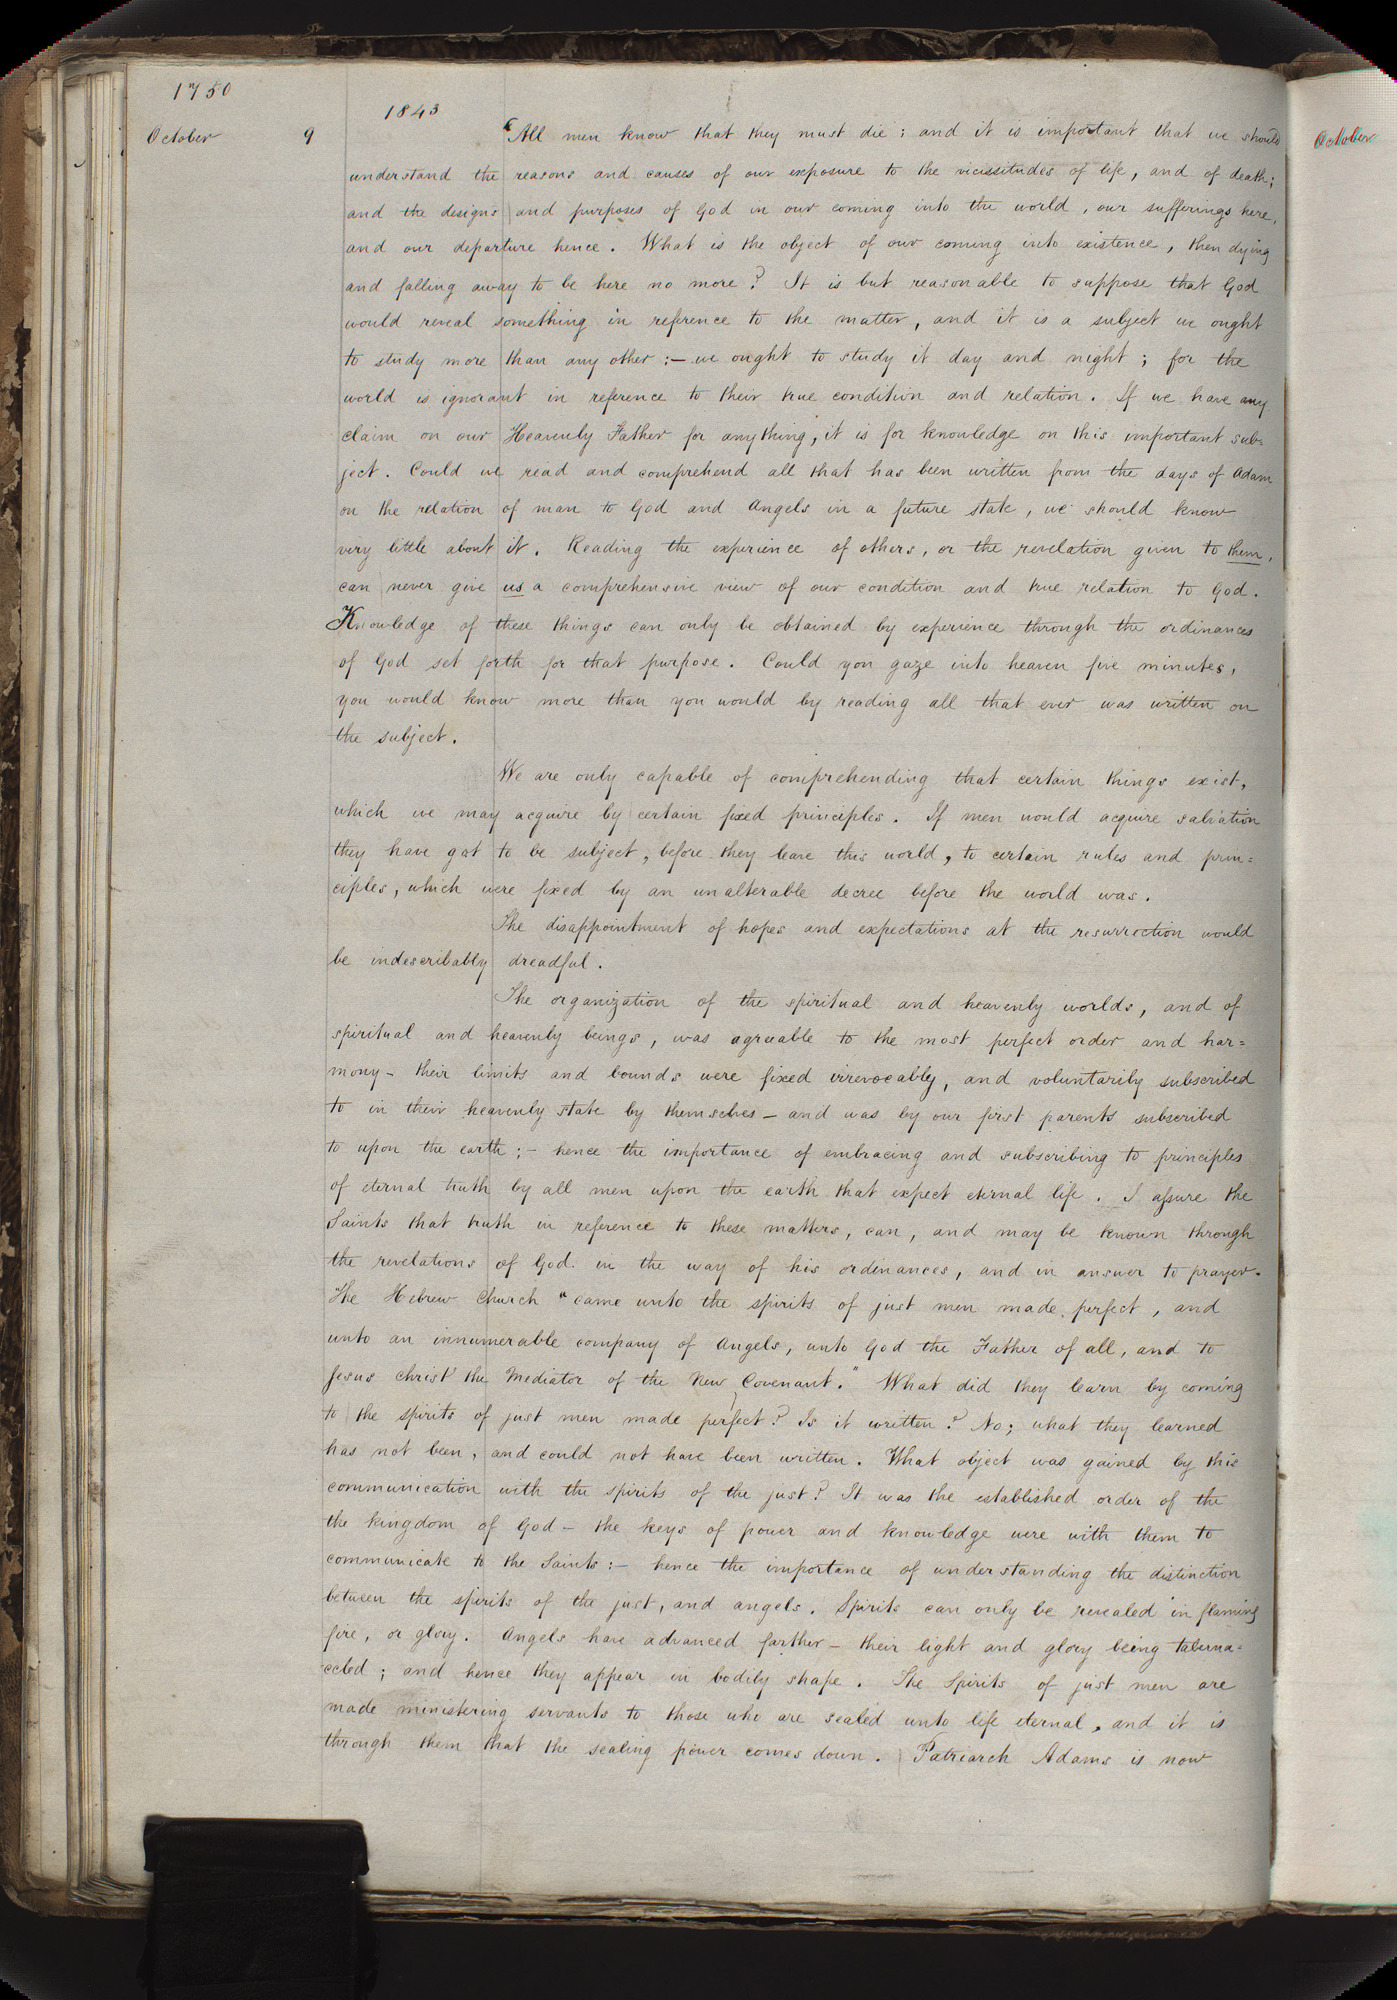 1750
1843
October 9 "All men know that they must die; and it is important that we should
October
understand the reasons and causes of our exposure to the vicissitudes of life, and of death;
and the designs and purposes of God in our coming into the world, our sufferings here,
and our departure hence. What is the object of our coming into existence, then dying
and falling away to be here no more? It is but reasonable to suppose that God
would reveal something in reference to the matter, and it is a subject we ought
to study more than any other:— we ought to study it day and night; for the
world is ignorant in reference to their true condition and relation. If we have any
claim on our Heavenly Father for anything, it is for knowledge on this important sub=
ject. Could we read and comprehend all that has been written from the days of Adam
on the relation of man to God and Angels in a future state, we should know
very little about it. Reading the experience of others, or the revelation given to them,
can never give us a comprehensive view of our condition and true relation to God.
Knowledge of these things can only be obtained by experience through the ordinances
of God set forth for that purpose. Could you gaze into heaven five minutes,
you would know more than you would by reading all that ever was written on
the subject.
We are only capable of comprehending that certain things exist,
which we may acquire by certain fixed principles. If men would acquire salvation
they have got to be subject, before they leave this world, to certain rules and prin=
ciples, which were fixed by an unalterable decree before the world was.
The disappointment of hopes and expectations at the resurrection would
be indescribably dreadful.
The organization of the spiritual and heavenly worlds, and of
spiritual and heavenly beings, was agreeable to the most perfect order and har=
mony— their limits and bounds were fixed irrevocably, and voluntarily subscribed
to in their heavenly state by themselves— and was by our first parents subscribed
to upon the earth;— hence the importance of embracing and subscribing to principles
of eternal truth by all men upon the earth that expect eternal life. I assure the
Saints that truth in reference to these matters, can, and may be known through
the revelations of God in the way of his ordinances, and in answer to prayer.
The Hebrew Church "came unto the spirits of just men made perfect, and
unto an innumerable company of Angels, unto God the Father of all, and to
Jesus Christ the Mediator of the New Covenant." What did they learn by coming
to the spirits of just men made perfect? Is it written? No; what they learned
has not been, and could not have been written. What object was gained by this
communication with the spirits of the just? It was the established order of the
the kingdom of God— the keys of power and knowledge were with them to
communicate to the Saints:— hence the importance of understanding the distinction
between the spirits of the just, and angels. Spirits can only be revealed in flaming
fire, or glory. Angels have advanced farther— their light and glory being taberna=
cled; and hence they appear in bodily shape. The Spirits of just men are
made ministering servants to those who are sealed unto life eternal, and it is
through them that the sealing power comes down. Patriarch Adams is now